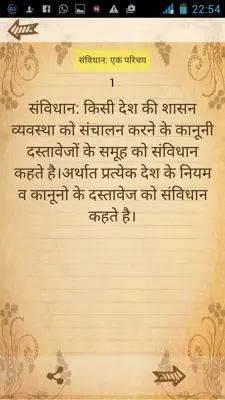 22:54
संविधान: एक परिचय
1
संविधान: किसी देश की शासन
व्यवस्था को संचालन करने के कानूनी
दस्तावेजों के समूह को संविधान
कहते है।अर्थात प्रत्येक देश के नियम
व कानूनो के दस्तावेज को संविधान
कहते है।